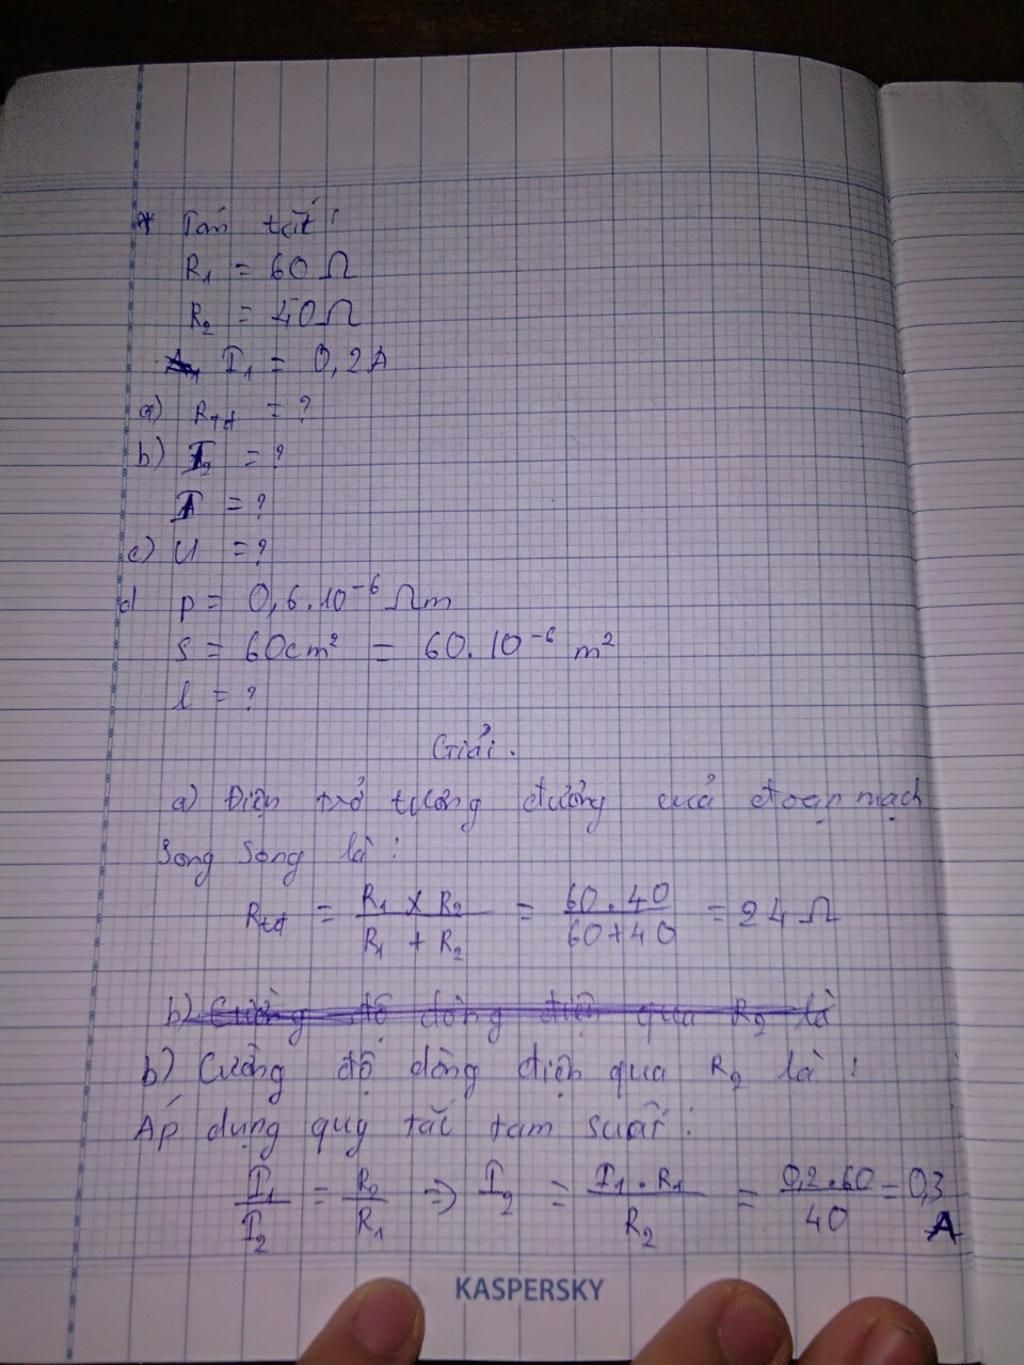 * Tóm tắt:
R₁ = 60 Ω
R₂ = 40 Ω
I₁ = 0,2A
a) Rtđ = ?
b) I₂ = ?
I = ?
c) U = ?
d p = 0,6.10⁻⁶ Ωm
S = 60cm² = 60.10⁻⁶ m²
l = ?
Giải.
a) Điện trở tương đương của đoạn mạch
song song là:
Rtđ = (R₁ x R₂)/(R₁ + R₂) = (60.40)/(60+40) = 24 Ω
b) Cường độ dòng điện qua R₂ là
b) Cường độ dòng điện qua R₂ là:
Áp dụng quy tắc tam suất:
I₁/I₂ = R₂/R₁ => I₂ = (I₁.R₁)/R₂ = (0,2.60)/40 = 0,3
A
KASPERSKY